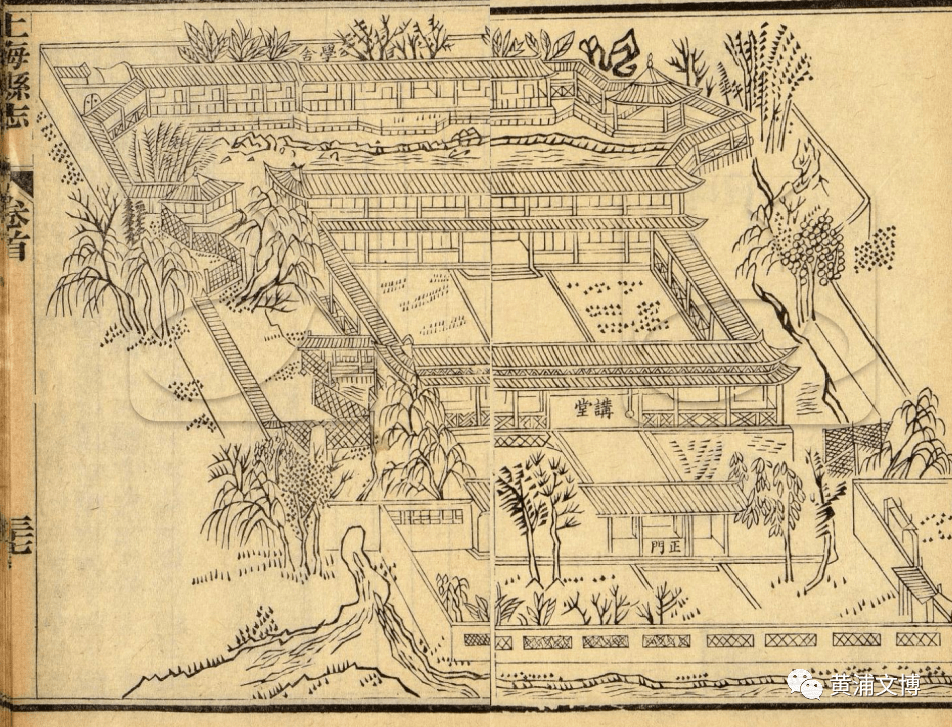 上海縣志
卷首
學舍
講堂
正門
黄浦文博